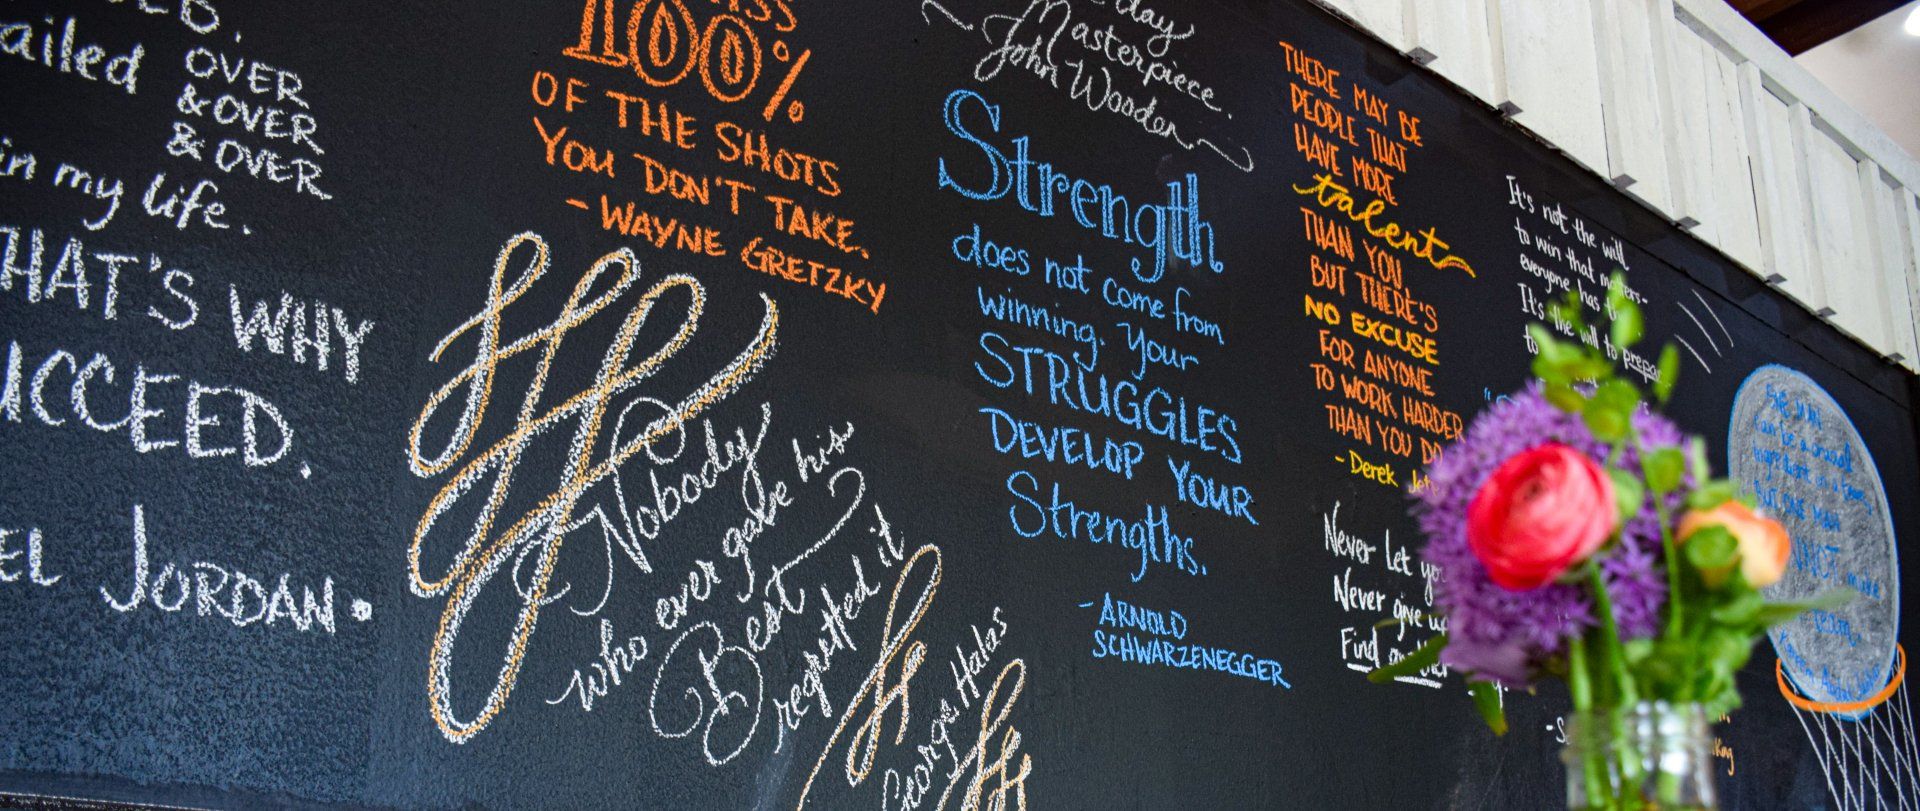 ailed OVER
& OVER
& OVER
in my life.
HAT'S WHY
UCCEED.
EL JORDAN.
100%
OF THE SHOTS
YOU DON'T TAKE.
- WAYNE GRETZKY
Nobody
who ever gave his
Best
regretted it
George Halas
day
Masterpiece.
John Wooden
Strength
does not come from
winning. Your
STRUGGLES
DEVELOP YOUR
Strengths.
- ARNOLD
SCHWARZENEGGER
THERE MAY BE
PEOPLE THAT
HAVE MORE
talent
THAN YOU,
BUT THERE'S
NO EXCUSE
FOR ANYONE
TO WORK HARDER
THAN YOU DO
- Derek
Never let
Never give
Find
It's not the will
to win that matters-
everyone has
It's the will to
to
One man
can be a crucial
ingredient on a team,
but one man
make
team.